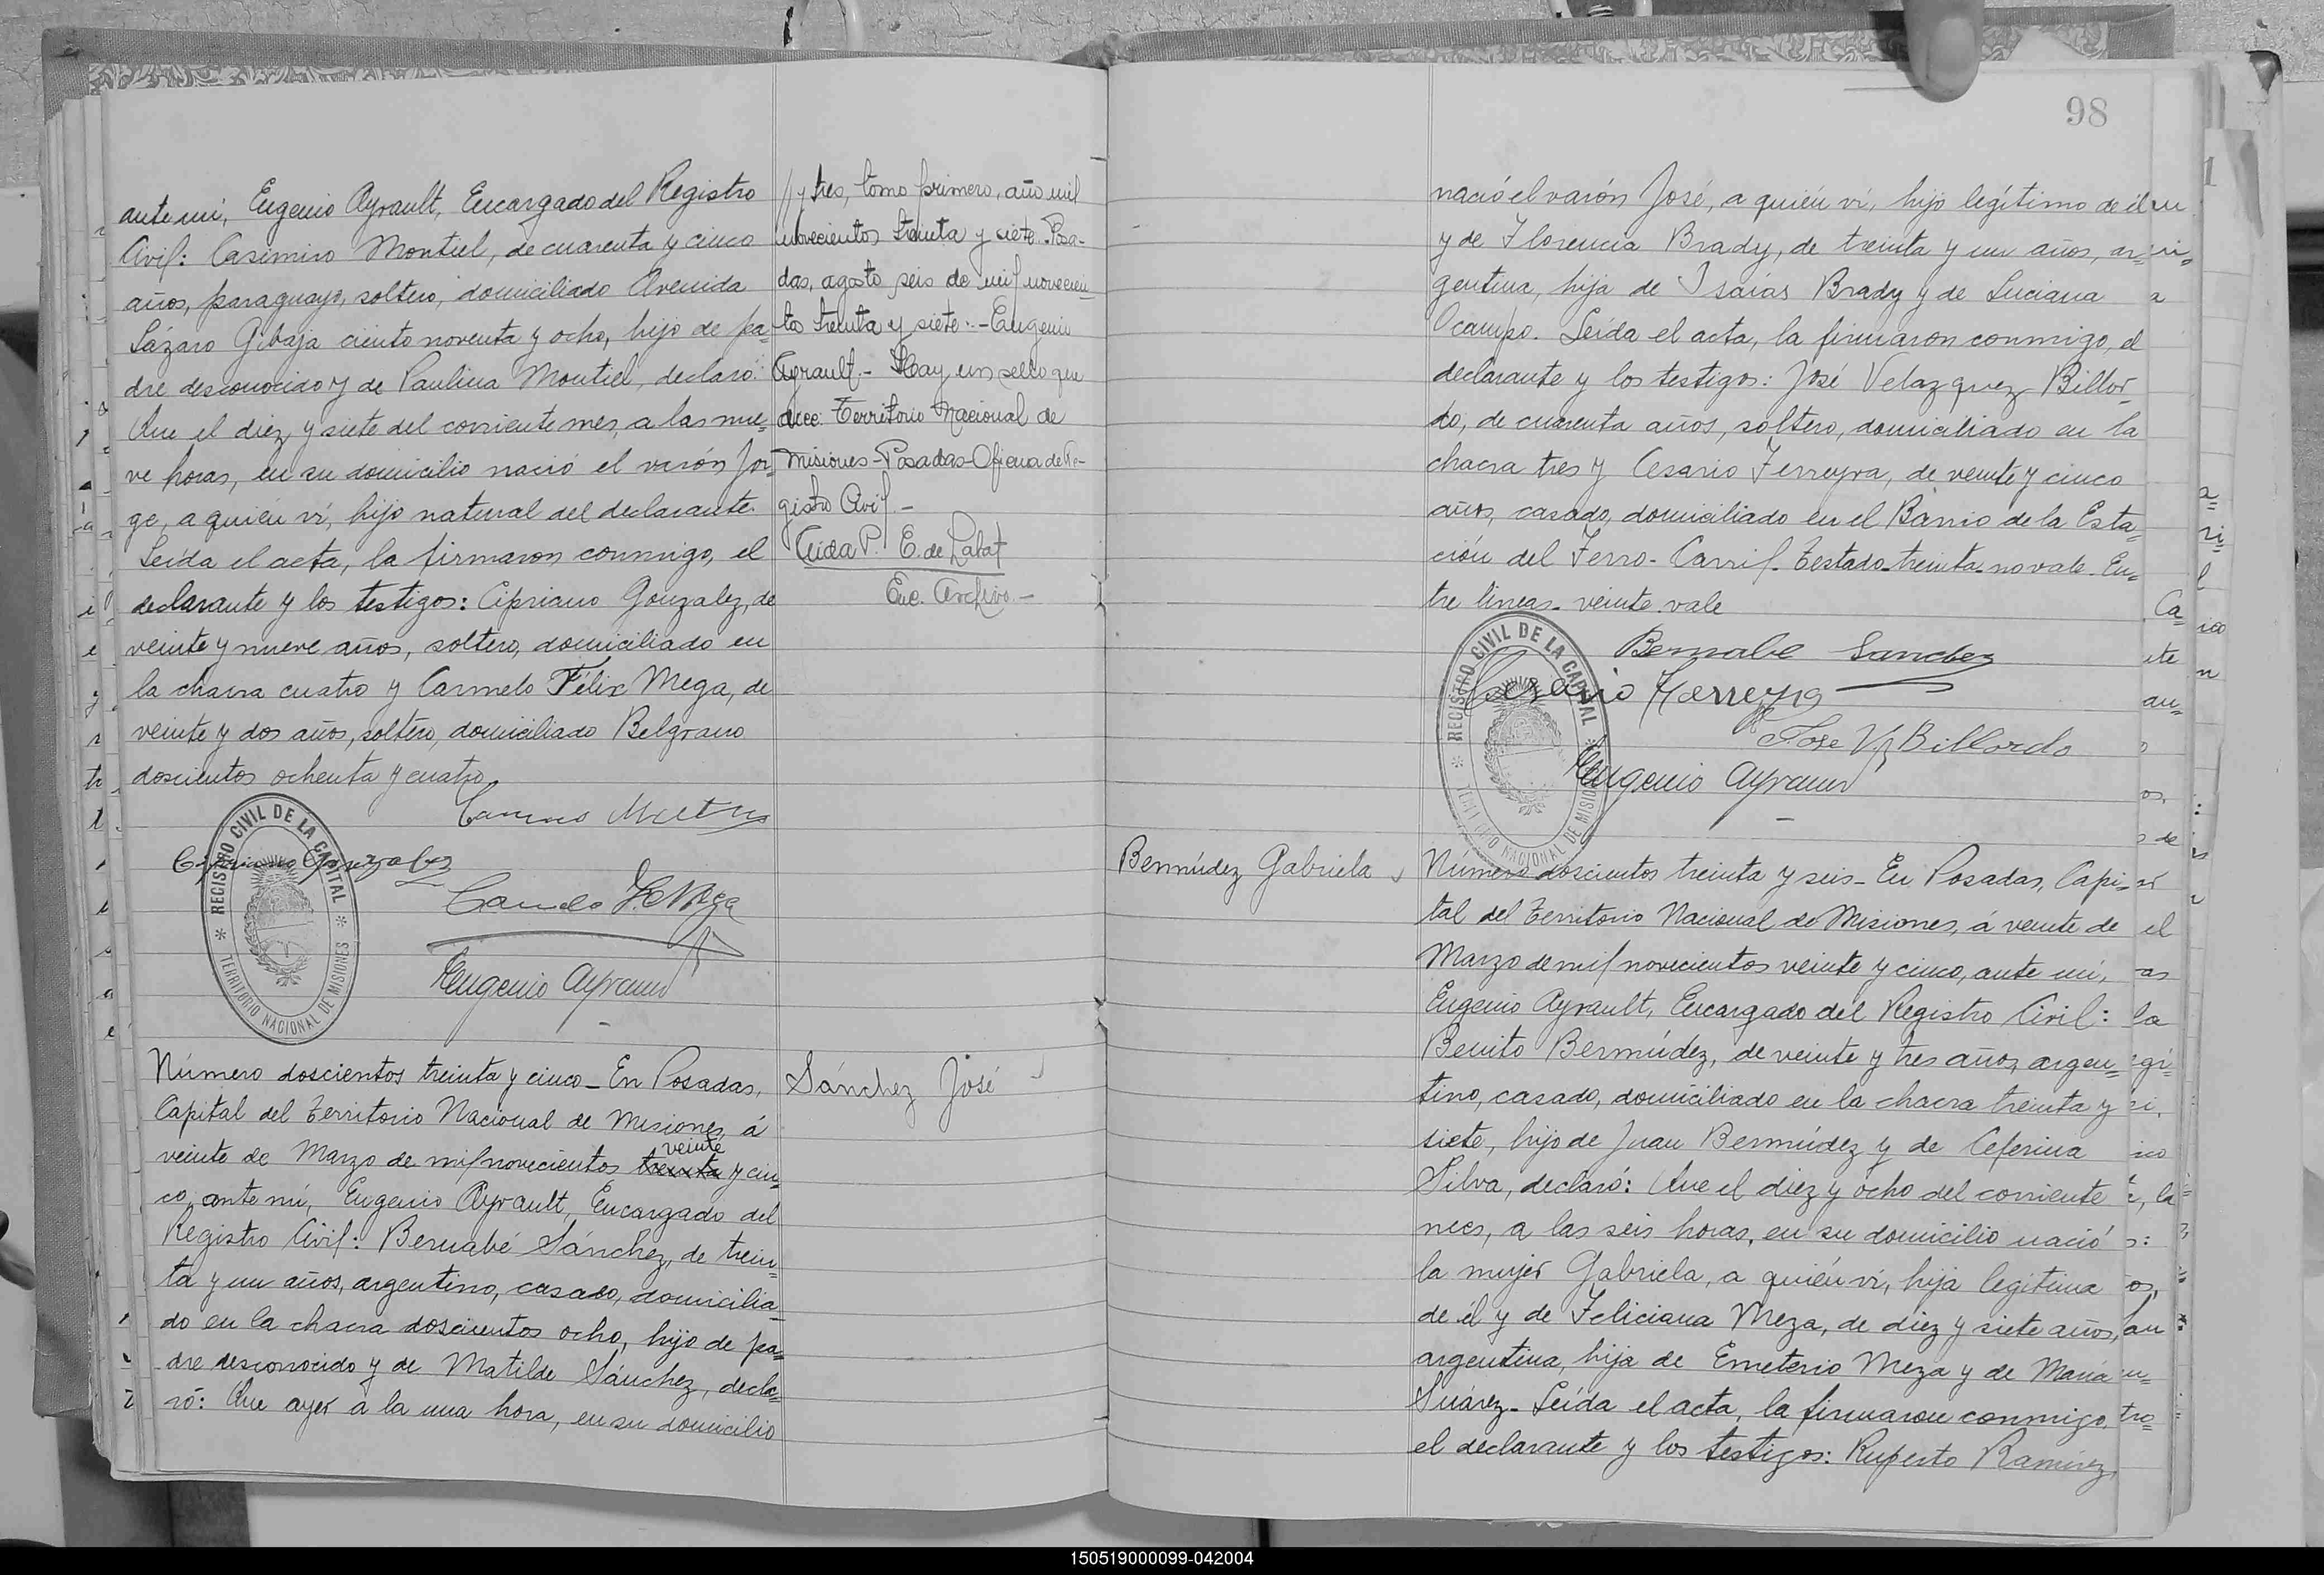 ante mí, Eugenio Ayrault, Encargado del Registro
Civil: Casimiro Montiel, de cuarenta y cinco
años, paraguayo, soltero, domiciliado Avenida
Lázaro Gibaja ciento noventa y ocho, hijo de pa=
dre desconocido y de Paulina Montiel, declaró:
Que el diez y siete del corriente mes, a las nue=
ve horas, en su domicilio nació el varón Jor=
ge, a quién ví, hijo natural del declarante.
Leída el acta, la firmaron conmigo, el
declarante y los testigos: Cipriano Gonzalez, de
veinte y nueve años, soltero, domiciliado en
la chacra cuatro y Carmelo Félix Mega, de
veinte y dos años, soltero, domiciliado Belgrano
doscientos ochenta y cuatro
Cipriano Gonzalez
Eugenio Ayrault
REGISTRO CIVIL DE LA CAPITAL
TERRITORIO NACIONAL DE MISIONES
// y tres, tomo primero, año mil
novecientos treinta y siete.-Posa-
das, agosto seis de mil novecien-
tos treinta y siete.-Eugenio
Ayrault.- Hay un sello que
dice: Territorio Nacional de
Misiones-Posadas-Oficina de Re-
gistro Civil.-
P. E. de
Enc. Archivo.-
Número doscientos treinta y cinco_ En Posadas,
Capital del Territorio Nacional de Misiones, á
veinte
veinte de Marzo de mil novecientos treinta y cin=
co, ante mí, Eugenio Ayrault, Encargado del
Registro Civil: Bernabé Sánchez, de trein=
ta y un años, argentino, casado, domicilia=
do en la chacra doscientos ocho, hijo de pa=
dre desconocido y de Matilde Sánchez, decla=
ró: Que ayer a la una hora, en su domicilio
Sánchez José
98
nació el varón José, a quién ví, hijo legítimo de él
y de Florencia Brady, de treinta y un años, ar=
gentina, hija de Isaías Brady y de Luciana
Ocampo. Leída el acta, la firmaron conmigo, el
declarante y los testigos: José Velazquez Billor=
do, de cuarenta años, soltero, domiciliado en la
chacra tres y Cesario Ferreyra, de veinte y cinco
años, casado, domiciliado en el Barrio de la Esta=
ción del Ferro-Carril. Testado-treinta-no vale. En=
tre líneas-veinte-vale
Bernabe Sanchez
Cesario Ferreyra
Jose V. Billordo
Eugenio Ayrault
REGISTRO CIVIL DE LA CAPITAL
TERRITORIO NACIONAL DE MISIONES
Bermúdez Gabriela
Número doscientos treinta y seis_ En Posadas, Capi=
tal del Territorio Nacional de Misiones, á veinte de
Marzo de mil novecientos veinte y cinco, ante mí,
Eugenio Ayrault, Encargado del Registro Civil:
Benito Bermúdez, de veinte y tres años, argen=
tino, casado, domiciliado en la chacra treinta y
siete, hijo de Juan Bermúdez y de Ceferina
Silva, declaró: Que el diez y ocho del corriente
mes, a las seis horas, en su domicilio nació
la mujer Gabriela, a quién ví, hija legítima
de él y de Feliciana Meza, de diez y siete años,
argentina, hija de Emeterio Meza y de María
Suárez_ Leída el acta, la firmaron conmigo,
el declarante y los testigos: Ruperto Ramírez,
150519000099-042004